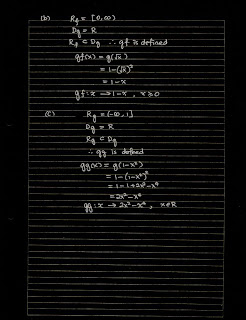 (b) Rf = [0,∞)
Dg = R
Rf ⊂ Dg ∴ gf is defined
gf(x) = g(√x)
= 1-(√x)²
= 1-x
gf : x → 1-x , x≥0
(c) Rg = (-∞, 1]
Dg = R
Rg ⊂ Dg
∴ gg is defined
gg(x) = g(1-x²)
= 1-(1-x²)²
= 1-1+2x²-x⁴
= 2x²-x⁴
gg : x → 2x²-x⁴ , x∈R